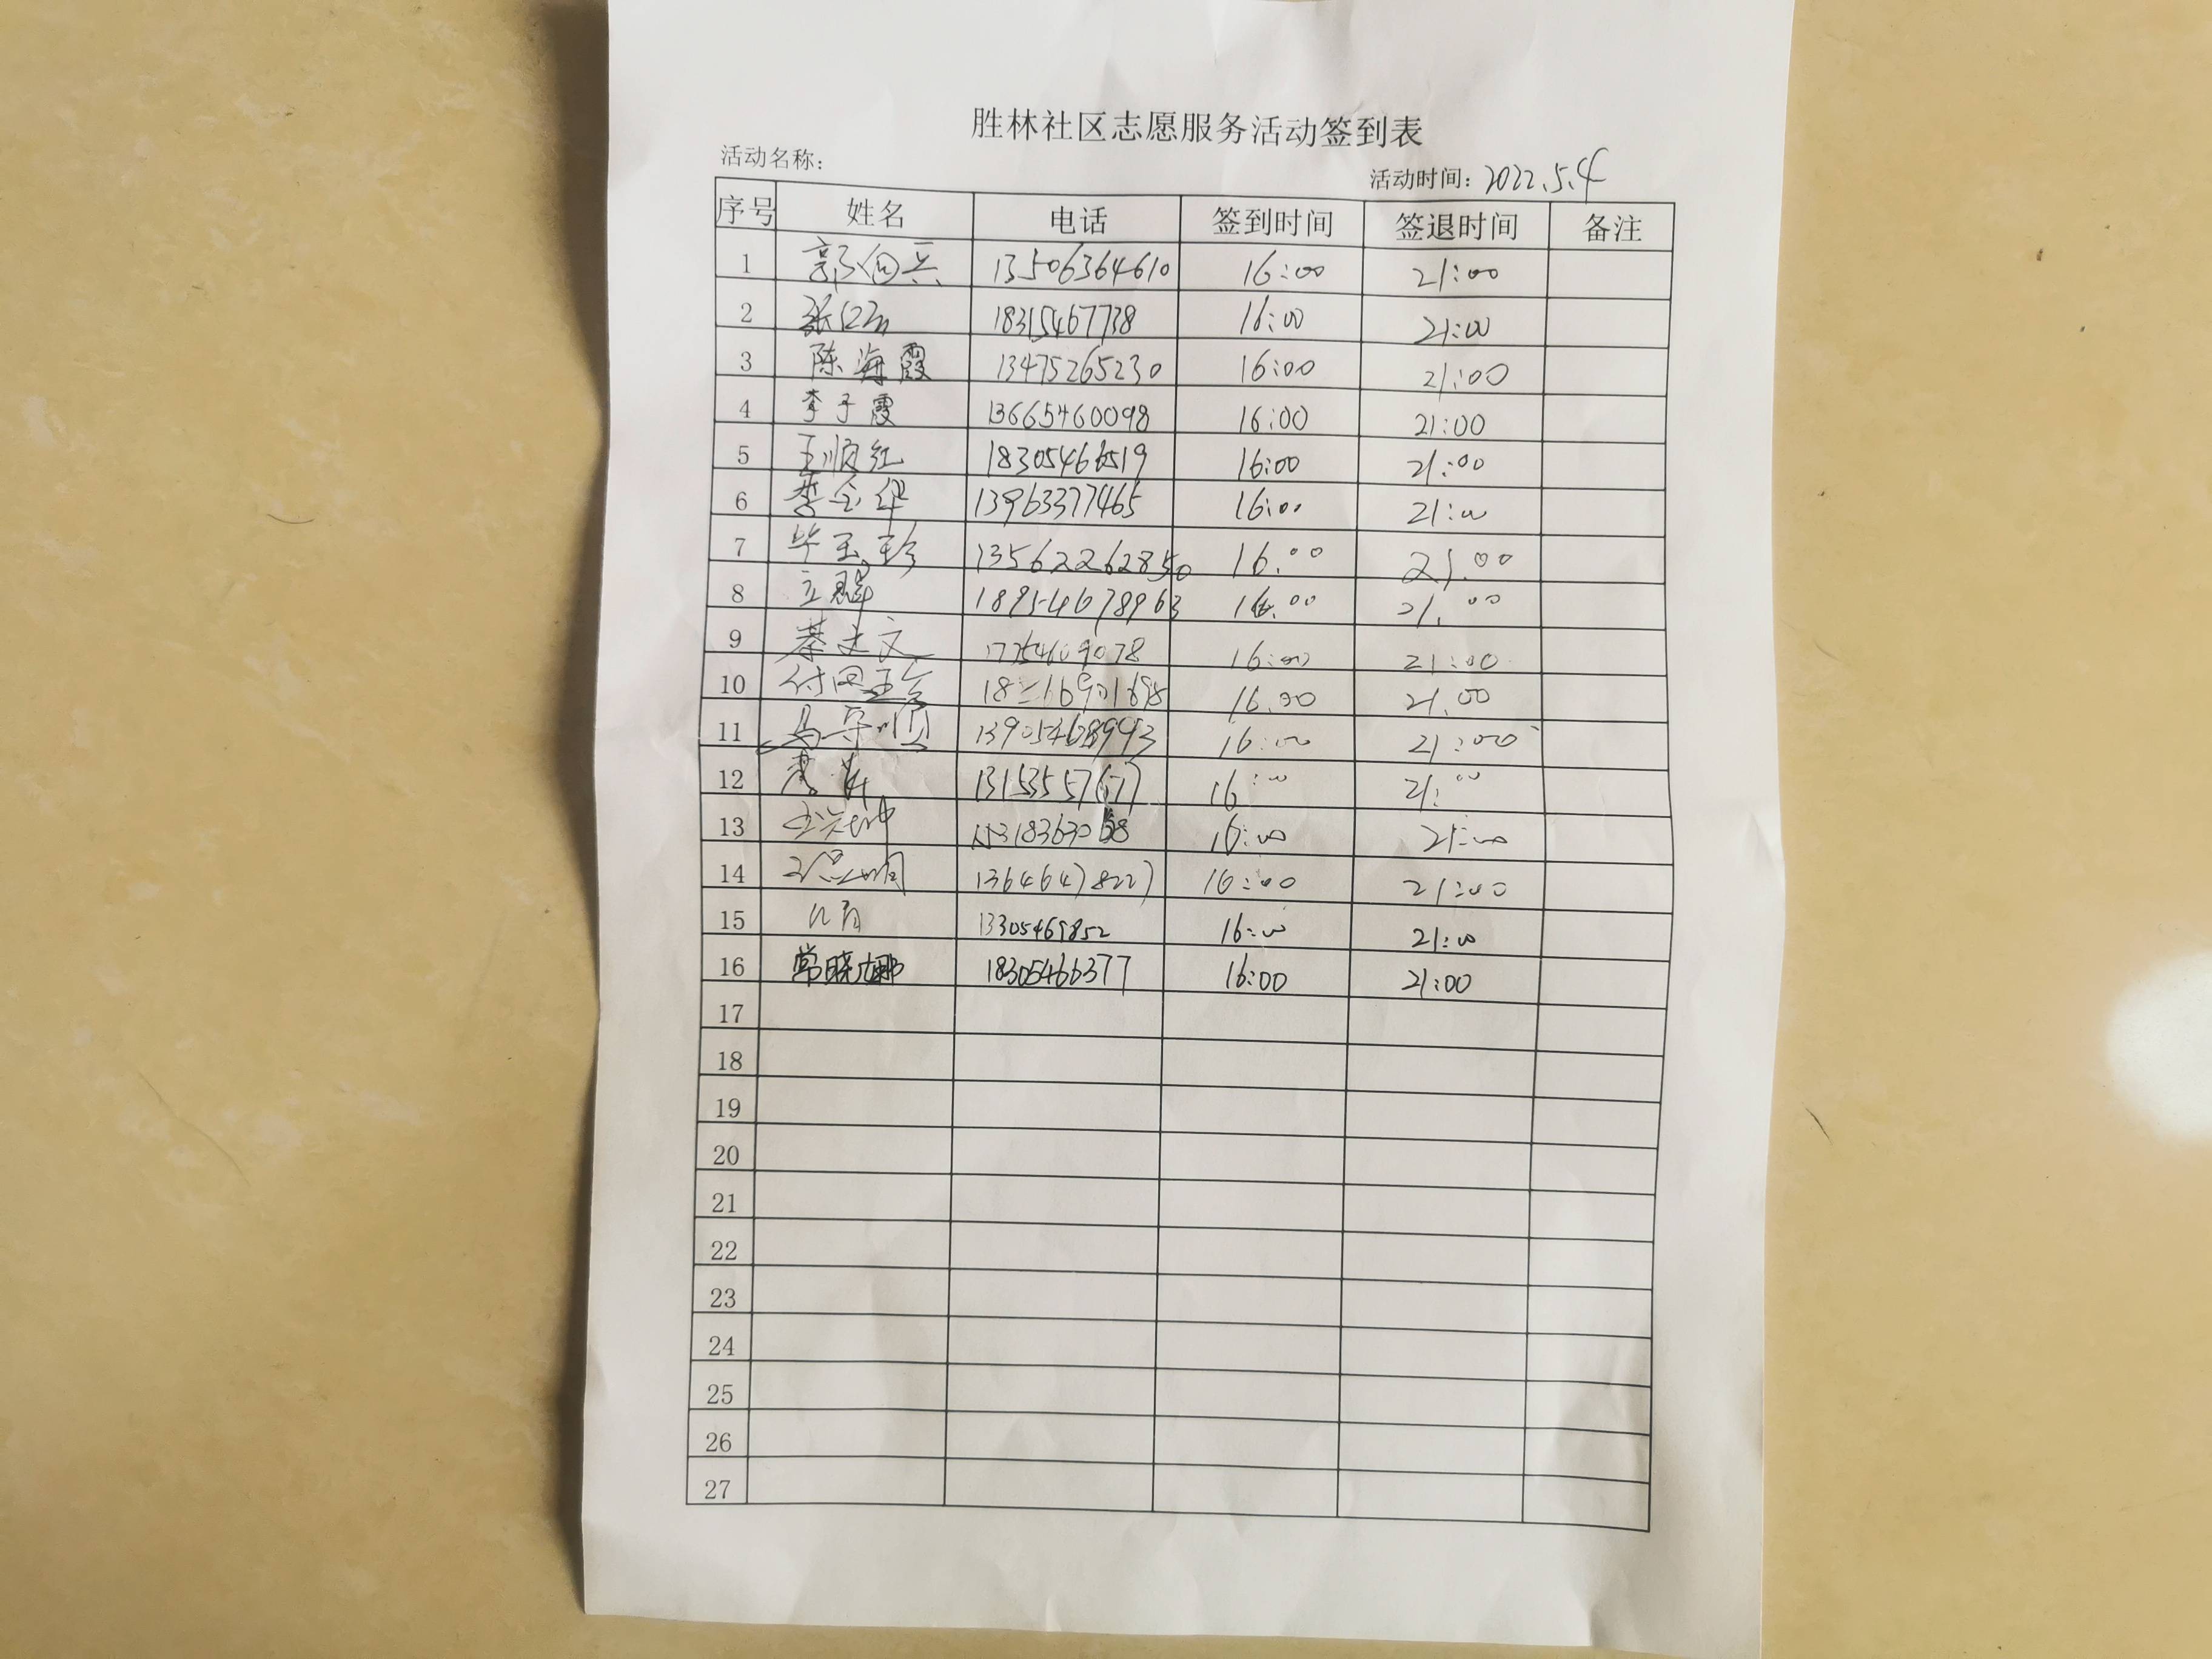 胜林社区志愿服务活动签到表
活动名称:
活动时间: 2022.5.4
序号 姓名 电话 签到时间 签退时间 备注
1 郭向兵 13506364610 16:00 21:00
2 张 18315467738 16:00 21:00
3 陈海霞 13475265230 16:00 21:00
4 李子霞 13665460098 16:00 21:00
5 王顺红 18305466519 16:00 21:00
6 李金华 13963377465 16:00 21:00
7 毕玉珍 13562262850 16:00 21:00
8 18954678963 16:00 21:00
9 17754609078 16:00 21:00
10 16:00 21:00
11 马守顺 13905468993 16:00 21:00
12 16:00 21:00
13 16:00 21:00
14 13646478227 16:00 21:00
15 13305469852 16:00 21:00
16 常晓娜 18305466377 16:00 21:00
17
18
19
20
21
22
23
24
25
26
27